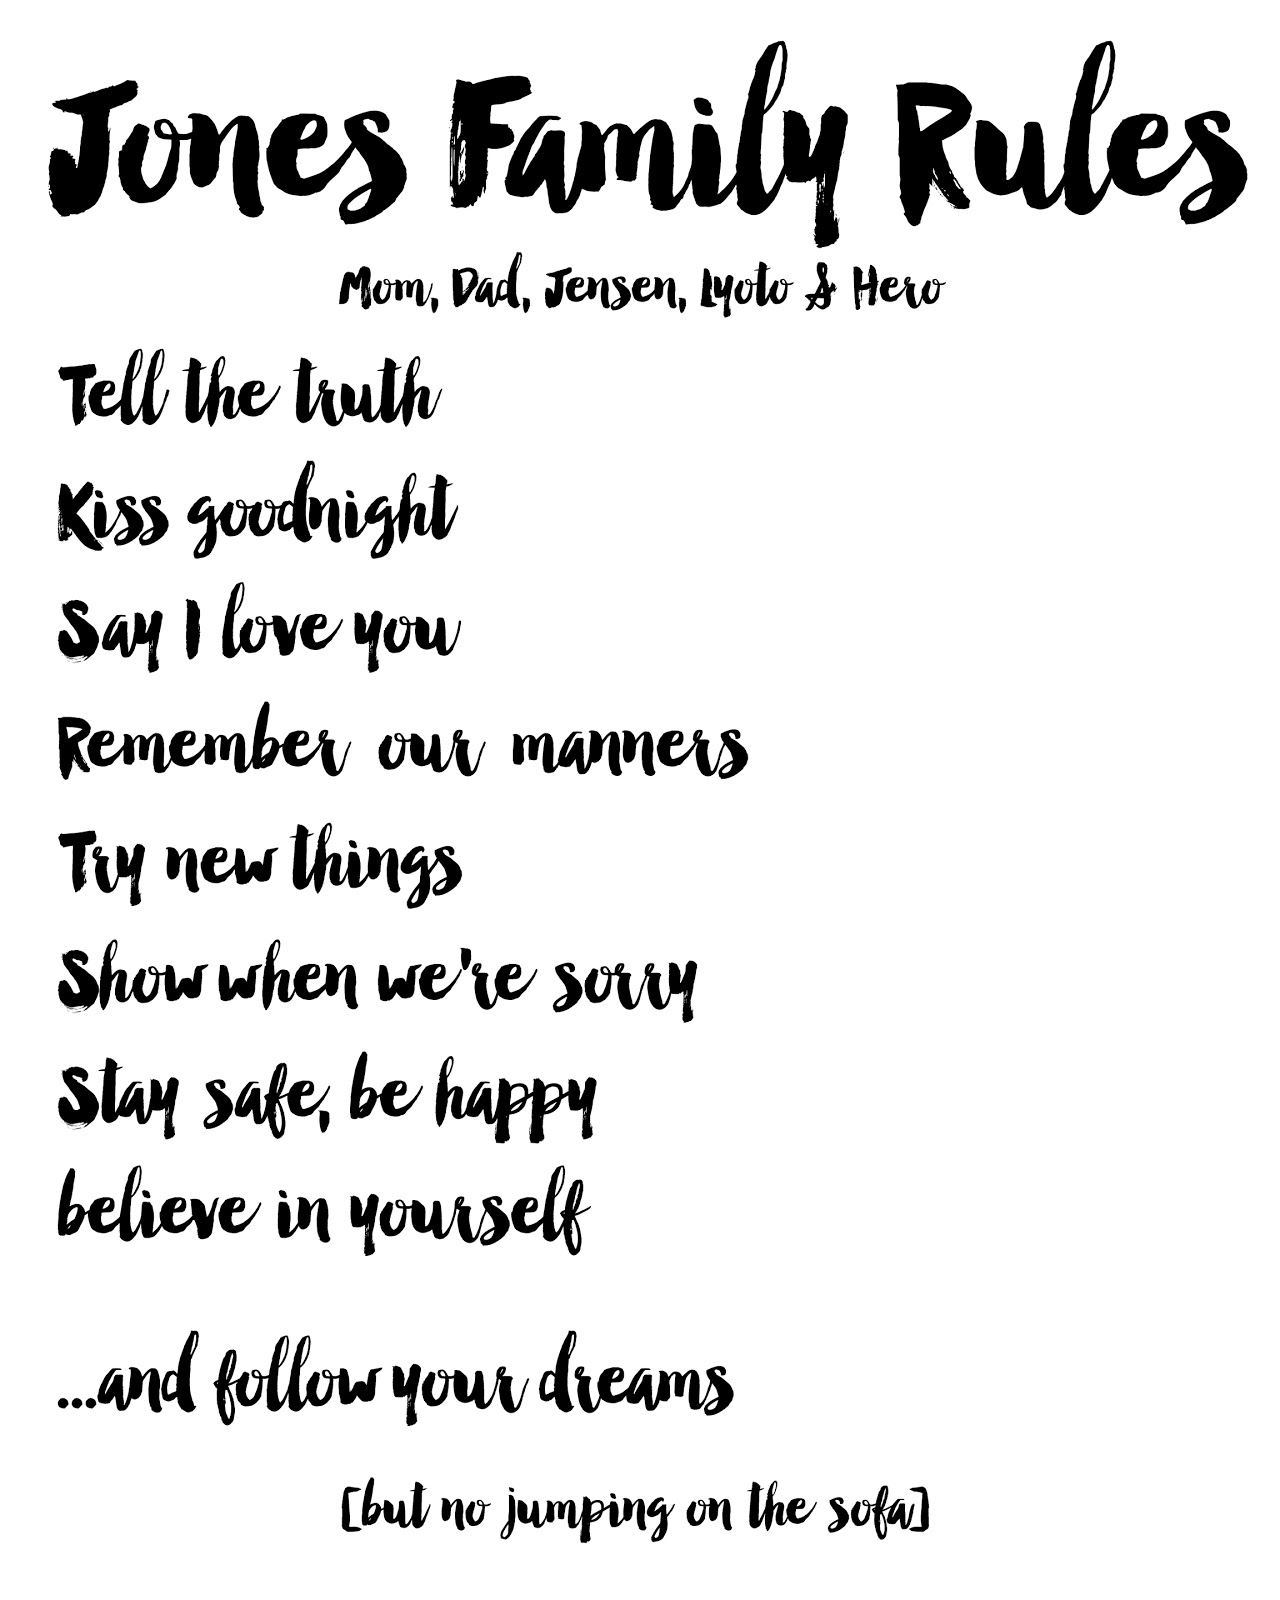 Jones Family Rules
Mom, Dad, Jensen, Lyoto & Hero
Tell the truth
Kiss goodnight
Say I love you
Remember our manners
Try new things
Show when we're sorry
Stay safe, be happy
believe in yourself
...and follow your dreams
[but no jumping on the sofa]